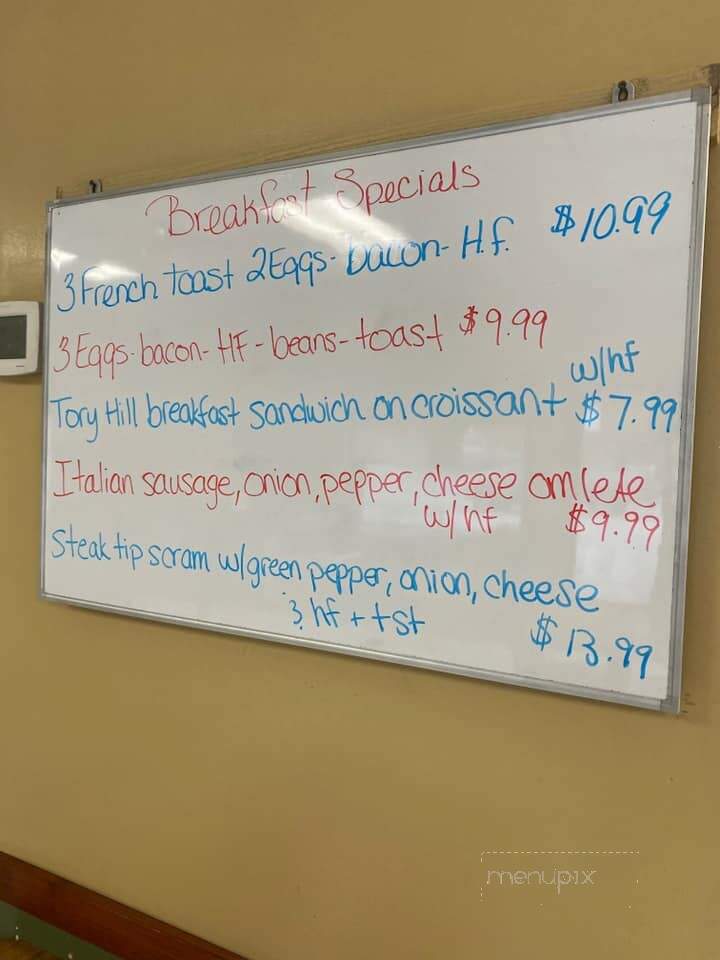 Breakfast Specials
3 French toast 2 Eggs - bacon - H.f. $10.99
3 Eggs - bacon - HF - beans - toast $9.99
w/hf
Tory Hill breakfast sandwich on croissant $7.99
Italian sausage, onion, pepper, cheese omlete
w/hf $9.99
Steak tip scram w/green pepper, onion, cheese
& hf + tst $13.99
menupix